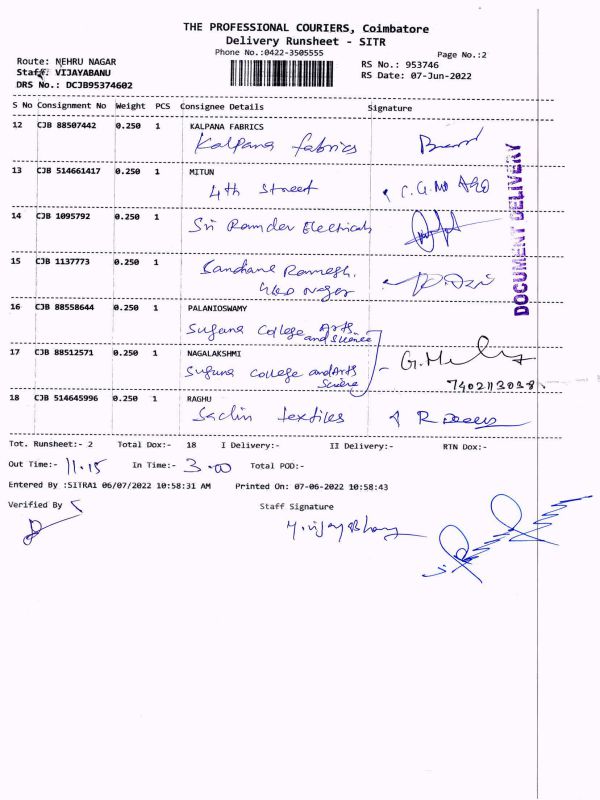 THE PROFESSIONAL COURIERS, Coimbatore
Delivery Runsheet - SITR
Phone No.:0422-3505555
Page No.:2
Route: NEHRU NAGAR
RS No.: 953746
Staff: VIJAYABANU
RS Date: 07-Jun-2022
DRS No.: DCJB95374602
S No Consignment No Weight PCS Consignee Details Signature
12 CJB 88507442 0.250 1 KALPANA FABRICS
Kalpana fabrics
13 CJB 514661417 0.250 1 MITUN
4th Street
14 CJB 1095792 0.250 1 Sri Ramdev Electricals
15 CJB 1137773 0.250 1
Nagar
16 CJB 88558644 0.250 1 PALANIOSWAMY
Suguna College Arts
and Science
17 CJB 88512571 0.250 1 NAGALAKSHMI
Suguna College and Arts
Science
18 CJB 514645996 0.250 1 RAGHU
Sachin textiles
DOCUMENT DELIVERY
Tot. Runsheet:- 2 Total Dox:- 18 I Delivery:- II Delivery:- RTN Dox:-
Out Time:- 11.15 In Time:- 3.00 Total POD:-
Entered By :SITRA1 06/07/2022 10:58:31 AM Printed On: 07-06-2022 10:58:43
Verified By Staff Signature